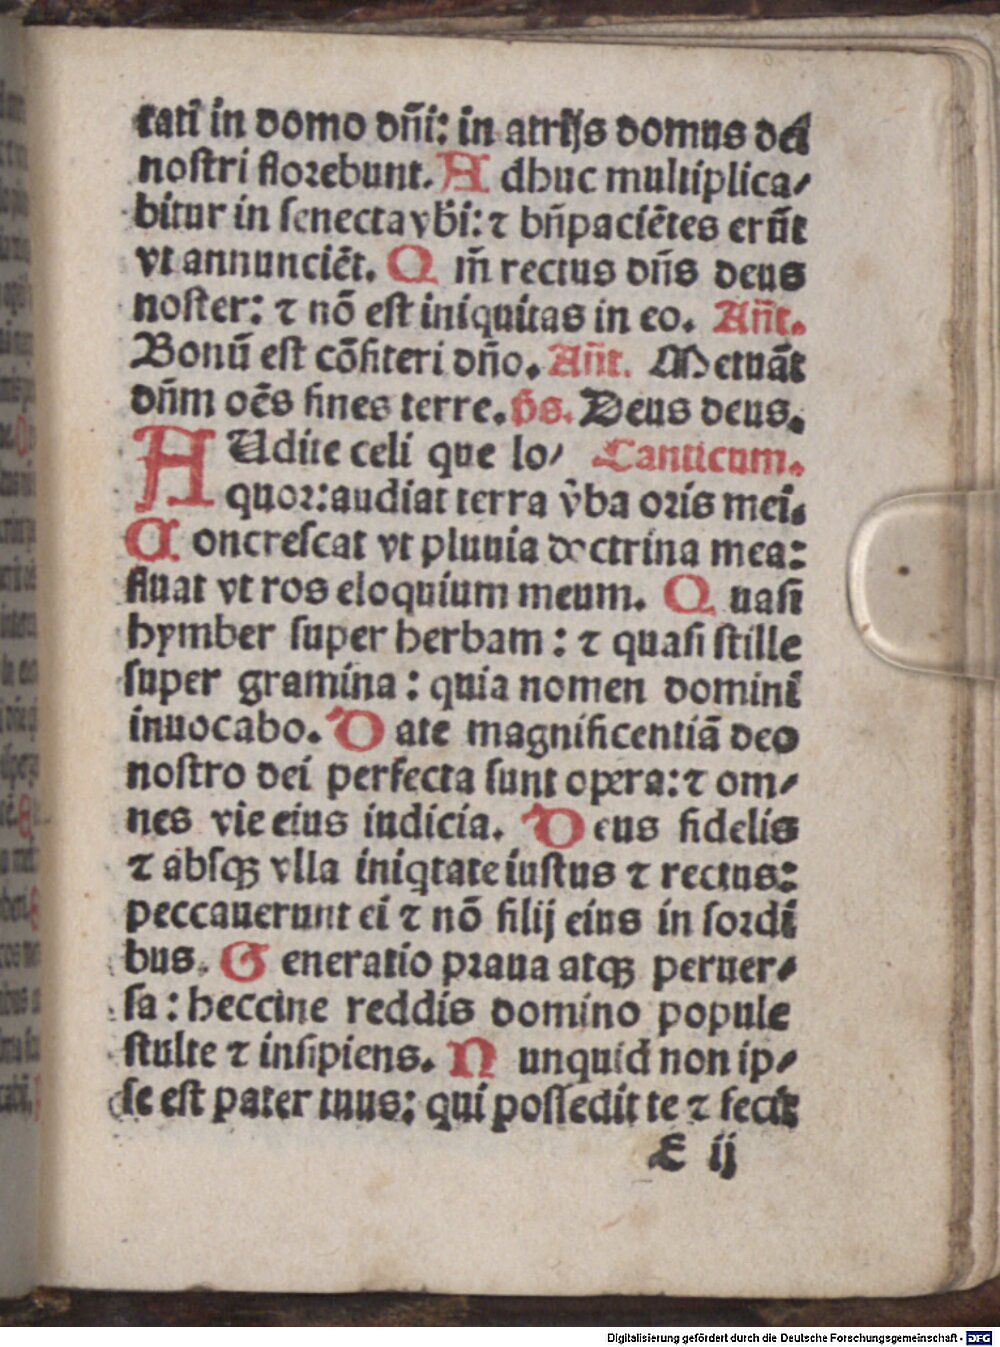 tati in domo dñi: in atrijs domus dei
nostri florebunt. A dhuc multiplica⸗
bitur in senecta vb̄i: ⁊ bñpaciētes erūt
vt annunciēt. Q m̄ rectus dñs deus
noster: ⁊ nō est iniquitas in eo. Añt.
Bonū est cōfiteri dño. Añt. Metuāt
dñm oēs fines terre. p̄s. Deus deus.
AUdite celi que lo⸗ Canticum.
quor: audiat terra v̄ba oris mei.
C oncrescat vt pluuia doctrina mea:
fluat vt ros eloquium meum. Q uasi
hymber super herbam: ⁊ quasi stille
super gramina: quia nomen domini
inuocabo. D ate magnificentiā deo
nostro dei perfecta sunt opera: ⁊ om⸗
nes vie eius iudicia. D eus fidelis
⁊ absqꝫ vlla iniqtate iustus ⁊ rectus:
peccauerunt ei ⁊ nō filij eius in sordi
bus. G eneratio praua atqꝫ peruer⸗
sa: heccine reddis domino popule
stulte ⁊ insipiens. N unquid non ip⸗
se est pater tuus: qui possedit te ⁊ fecit
E ij
Digitalisierung gefördert durch die Deutsche Forschungsgemeinschaft - DFG